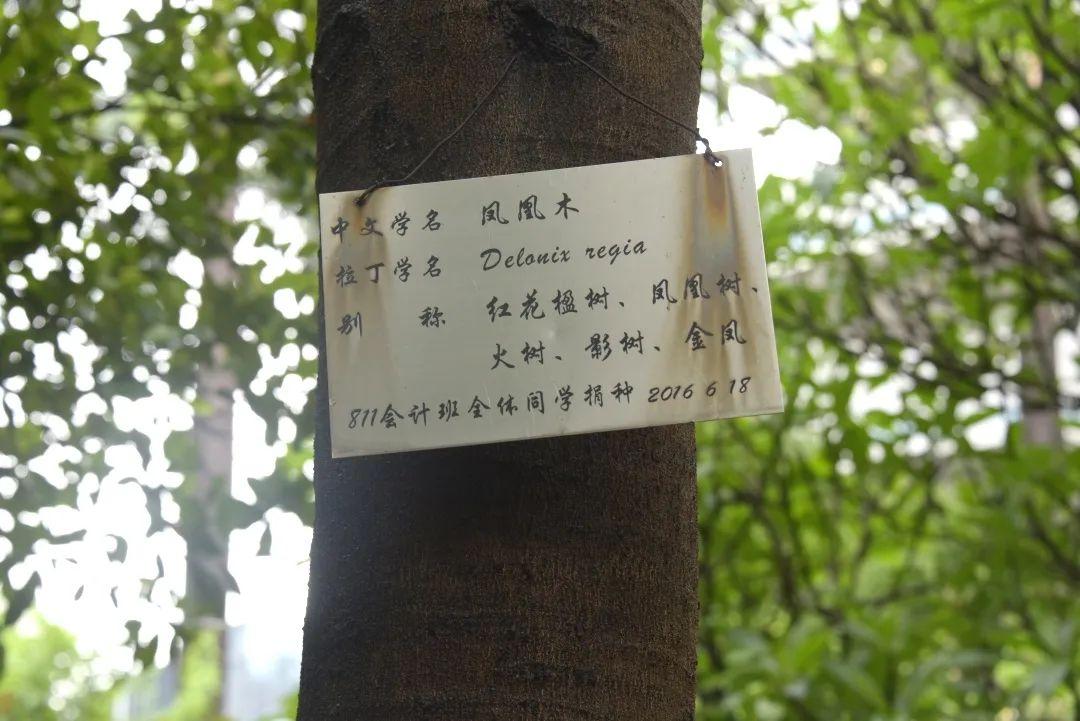 中文学名 凤凰木
拉丁学名 Delonix regia
别 称 红花楹树、凤凰树、
火树、影树、金凤
811会计班全体同学捐种 2016 6 18